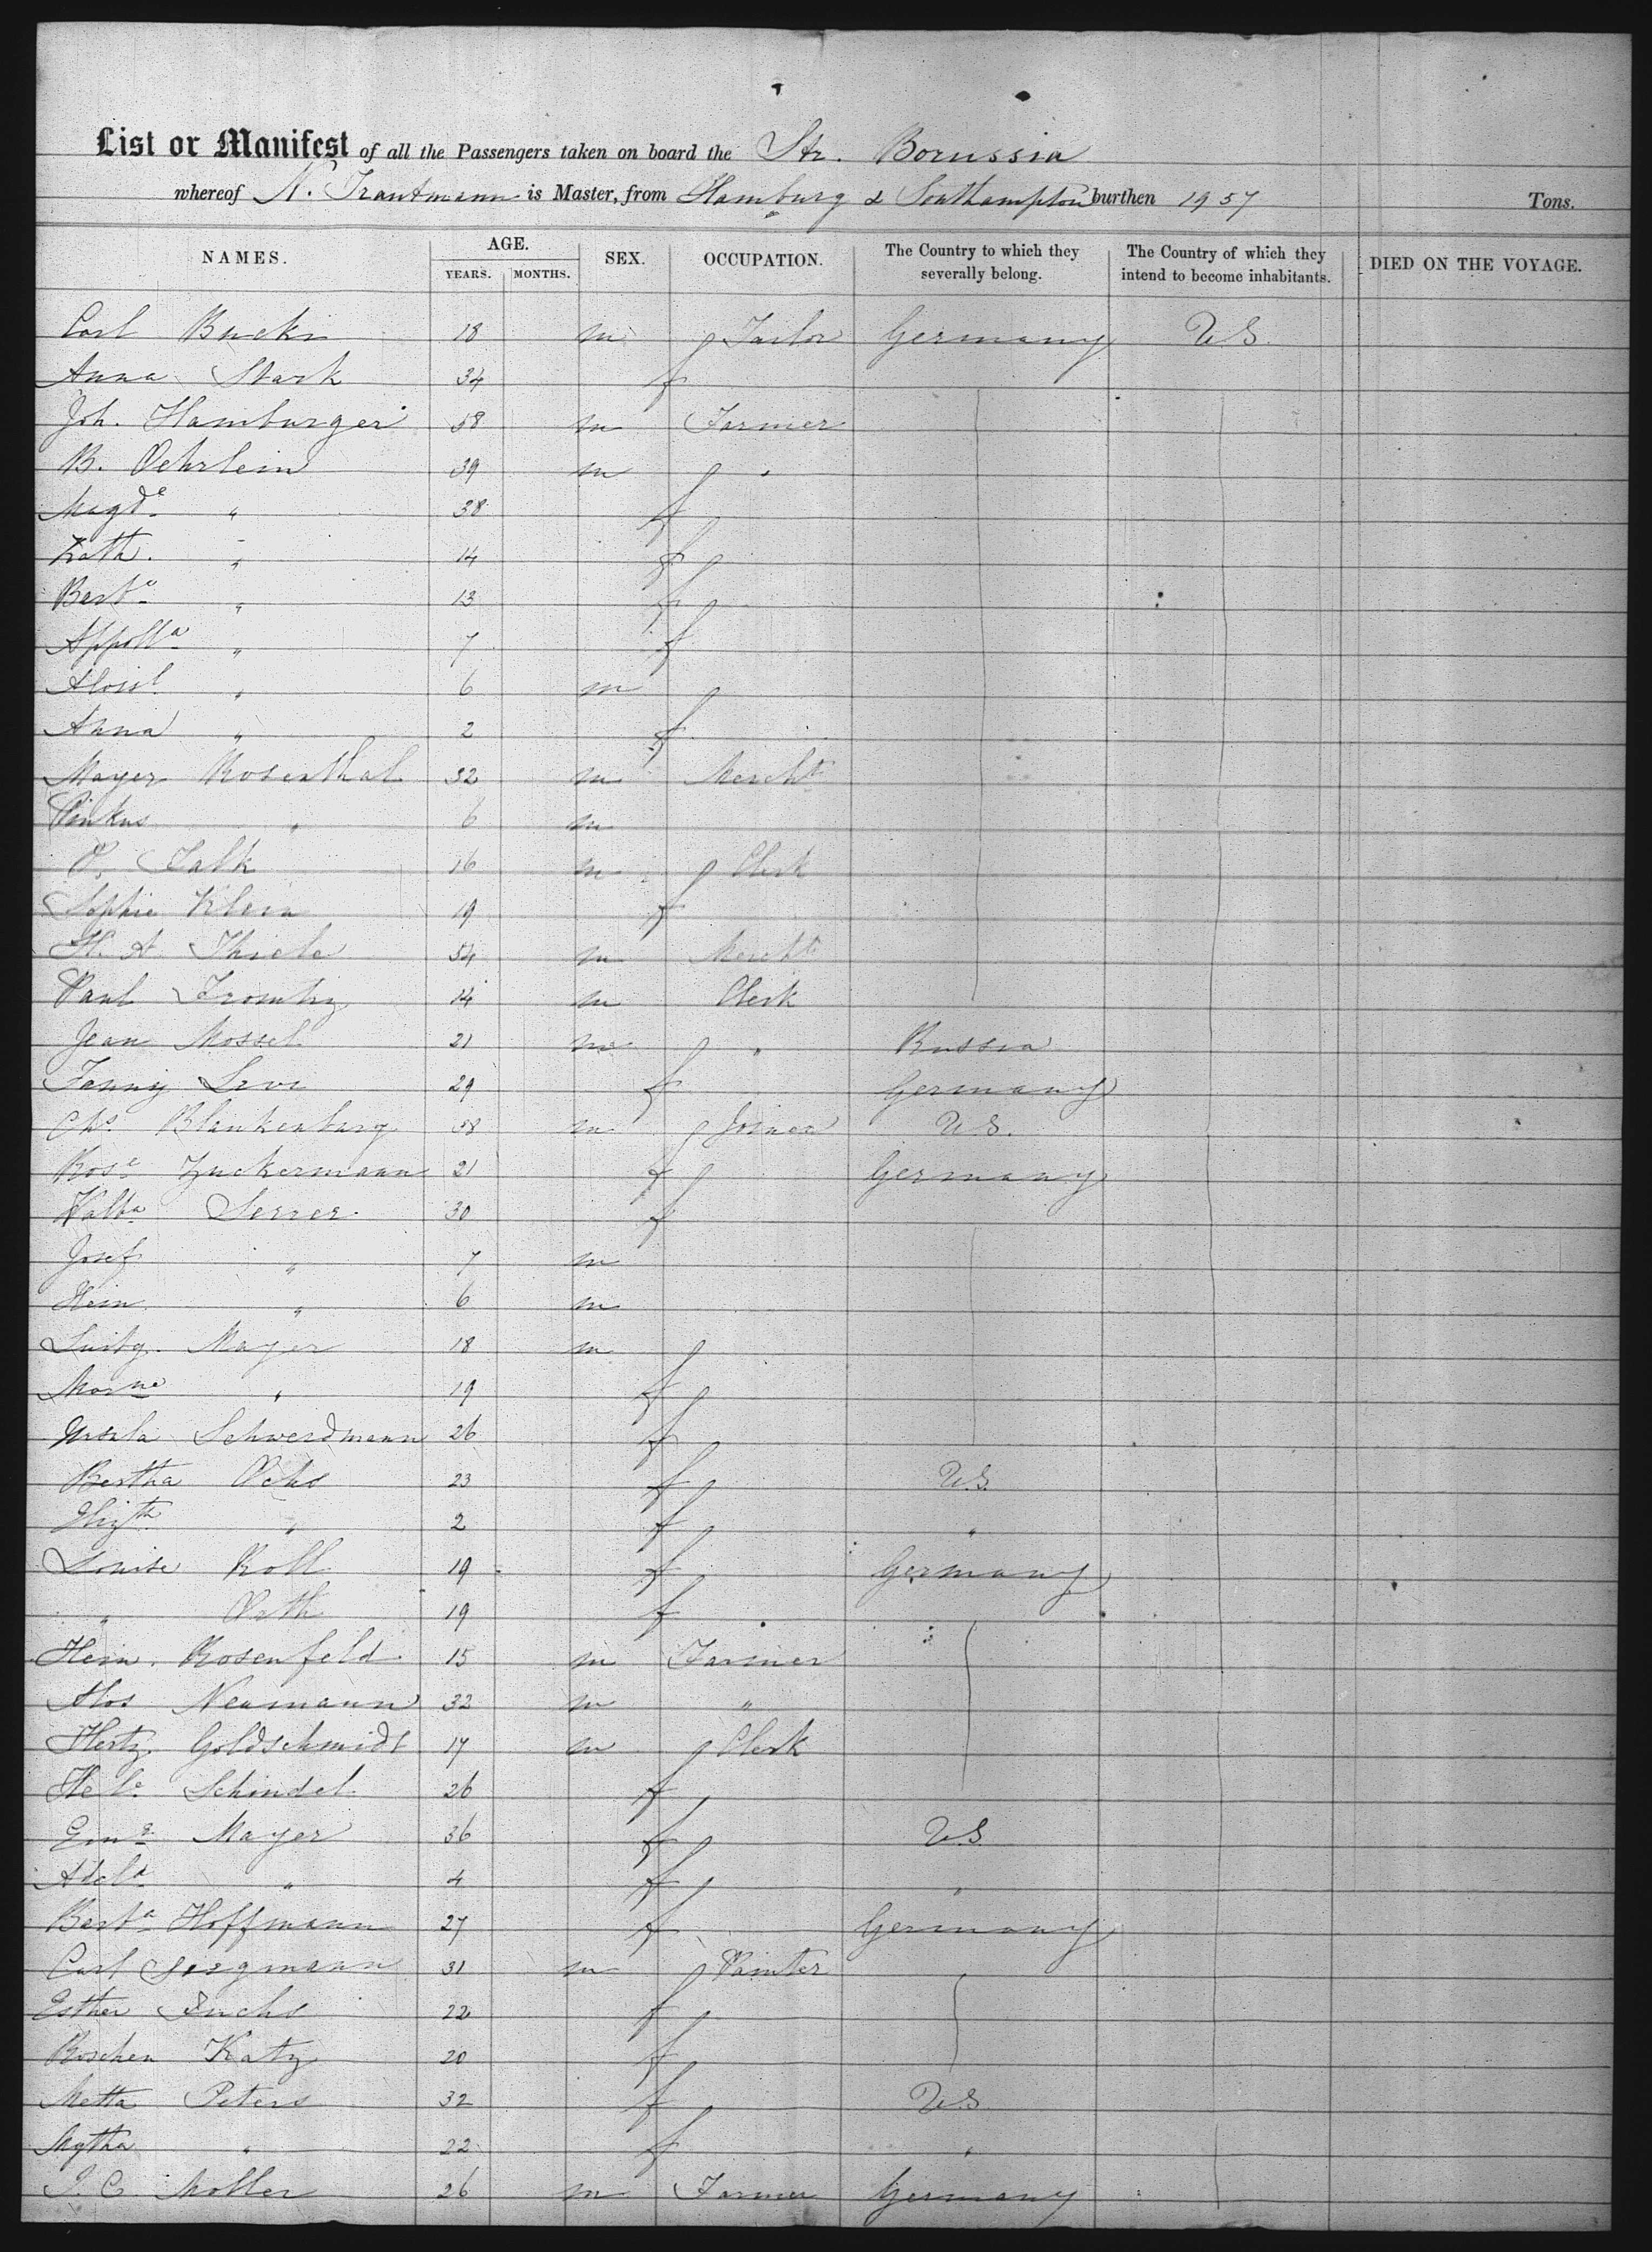 List or Manifest of all the Passengers taken on board the Str. Borussia
whereof N. Trautmann is Master, from Hamburg & Southampton burthen 1957 Tons.
NAMES. AGE. YEARS. MONTHS. SEX. OCCUPATION. The Country to which they severally belong. The Country of which they intend to become inhabitants. DIED ON THE VOYAGE.
Carl 18 m Tailor Germany U S
Anna Stark 34 f
Joh. Hamburger 58 m Farmer
B. Oehrlein 39 m "
Magde " 38 f
Kath. " 14 f
Berta " 13 f
Appolla " 7 f
" 6 m
Anna " 2 f
Mayer Rosenthal 32 m Mercht
Pinkus " 6 m
Falk 16 m Clerk
Sophie Klein 19 f
H. A. Thiele 54 m Mercht
Paul 14 m Clerk
Jean Mossel 21 m " Russia
Fanny Levi 29 f Germany
Chs Blankenburg 58 m Joiner U.S.
Rosa Zuckermann 21 f Germany
Walba Serrer 30 f
Josef " 7 m
Hein " 6 m
Mayer 18 m
" 19 f
Ursula Schwerdmann 26 f
Bertha Ochs 23 f U.S.
" 2 f "
Louise Roll 19 f Germany
" 19 f
Hein. Rosenfeld 15 m Farmer
Alos Neumann 32 m "
Hertz Goldschmidt 17 m Clerk
Hele Schindel 26 f
Mayer 36 f U.S.
Adela " 4 f "
Berta Hoffmann 27 f Germany
Carl 31 m Painter
Esther Fuchs 22 f
Roschen Katz 20 f
Metta Peters 32 f U.S
Mytha " 22 f "
J. C. Moller 26 m Farmer Germany